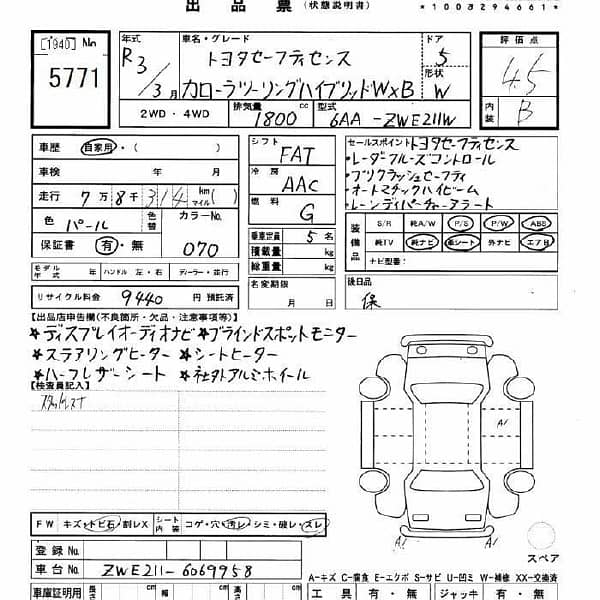 出品票 (状態説明書)
*1008294661*
[1940] No
5771
年式
車名・グレード
ドア
評価点
R3/3月
トヨタセーフティセンス
5
形状
カローラツーリングハイブリッドWxB
W
4.5
2WD・4WD
排気量 1800 cc
型式 6AA-ZWE211W
内装 B
車歴 自家用・( )
シフト FAT
セールスポイント トヨタセーフティセンス
・レーダクルーズコントロール
・プリクラッシュセーフティ
・オートマチックハイビーム
・レーンディパーチャーアラート
車検 年 月
冷房 AAC
走行 7万8千314 km マイル ( )
燃料 G
色 パール
色替
カラーNo. 070
保証書 有・無
乗車定員 5名
積載量 kg
総重量 kg
装備品
S/R 純A/W P/S P/W ABS
純TV 純ナビ 革シート 外ナビ エアB
ナビ型番:
モデル年式 年 ハンドル 左・右 ディーラー・並行
名変期限 月 日
後日品
保
リサイクル料金 9440 円 預託済
【出品店申告欄(不良箇所・欠品・注意事項等)】
★ディスプレイオーディオナビ★ブラインドスポットモニター
★ステアリングヒーター ★シートヒーター
★ハーフレザーシート ★社外アルミホイール
【検査員記入】
スタッドレス
A1
A1
A1
FW キズ・トビ石・割レX
シート内装 コゲ・穴・汚レ・シミ・破レ・スレ
スペア
登録No.
車台No. ZWE211-6069958
A-キズ C-腐食 E-エクボ S-サビ U-凹ミ W-補修 XX-交換済
車庫証明用 長さ cm 幅 cm 高さ cm
工具 有・無 ジャッキ 有・無